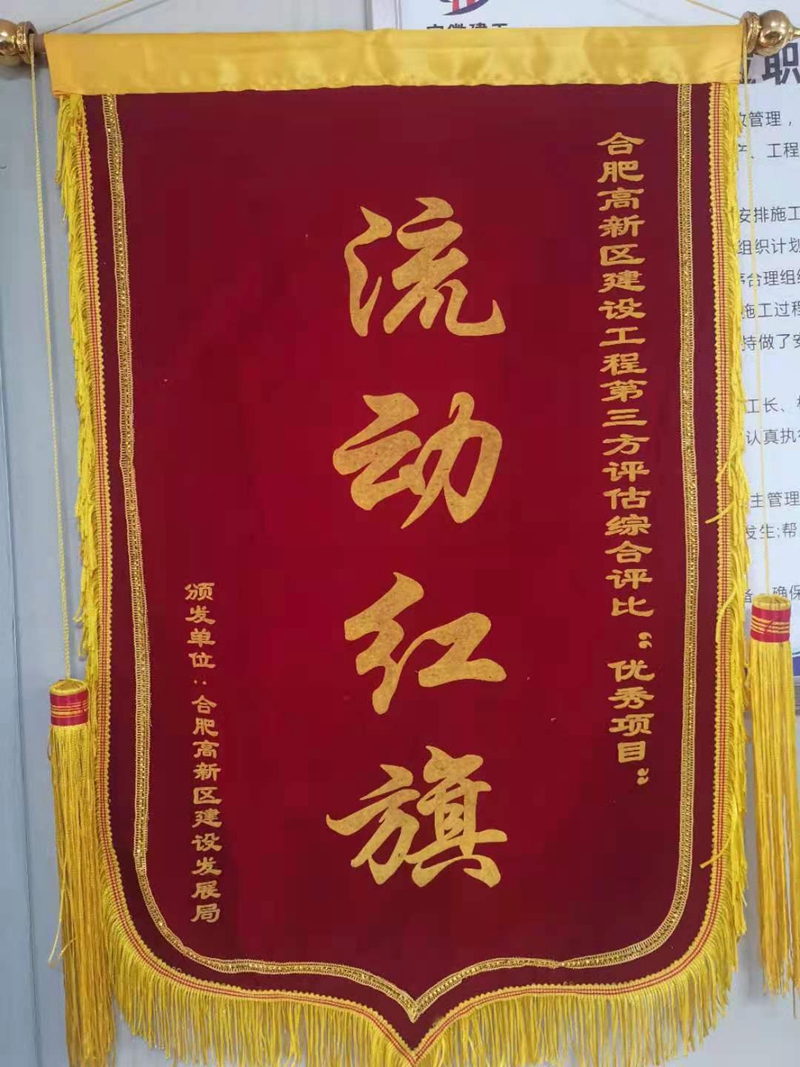 合肥高新区建设工程第三方评估综合评比“优秀项目”
流动红旗
颁发单位：合肥高新区建设发展局
安徽建工
职
管理，
、工程
安排施工
组织计划
合理组织
施工过程
持做了安
工长、
认真执行
主管理
发生;帮
、确保